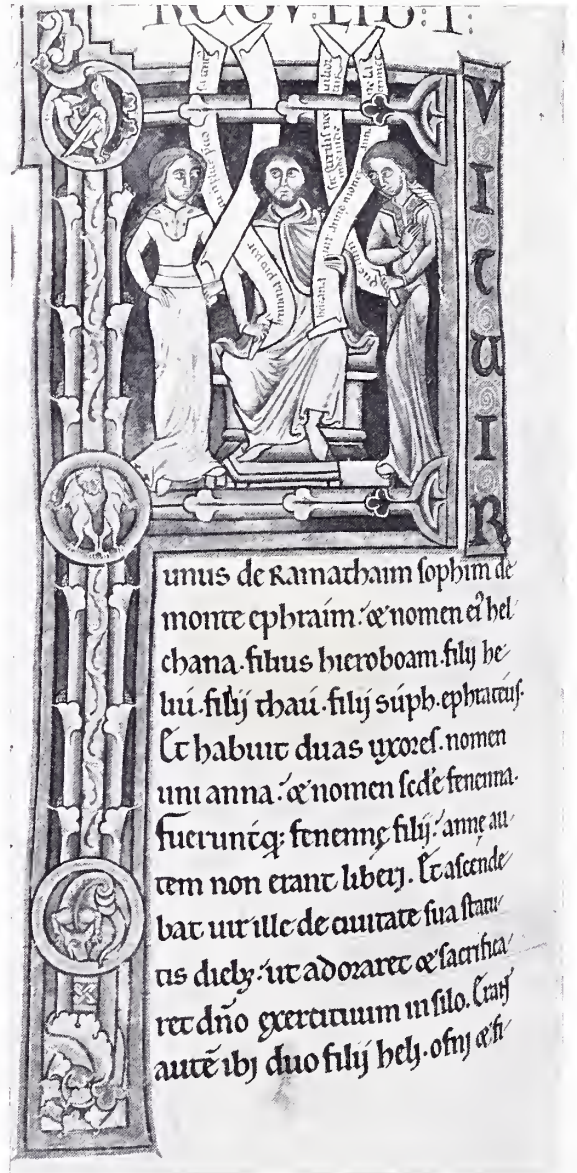 LIB: I:
V
I
T
U
I
R
unus de Ramathaim sophim de
monte ephraim. & nomen ei' hel
chana. filius hieroboam. filij he
liu. filij thau. filij suph. ephrateus.
Et habuit duas uxores. nomen
uni anna. & nomen scd'e fenenna.
fueruntq; fenennę filij. annę au
tem non erant liberj. Et ascende
bat uir ille de ciuitate sua statu
tis dieb; ut adoraret & sacrifica
ret dño exercituum in silo. Erant
autē ibj duo filij helj. ofnj & fi